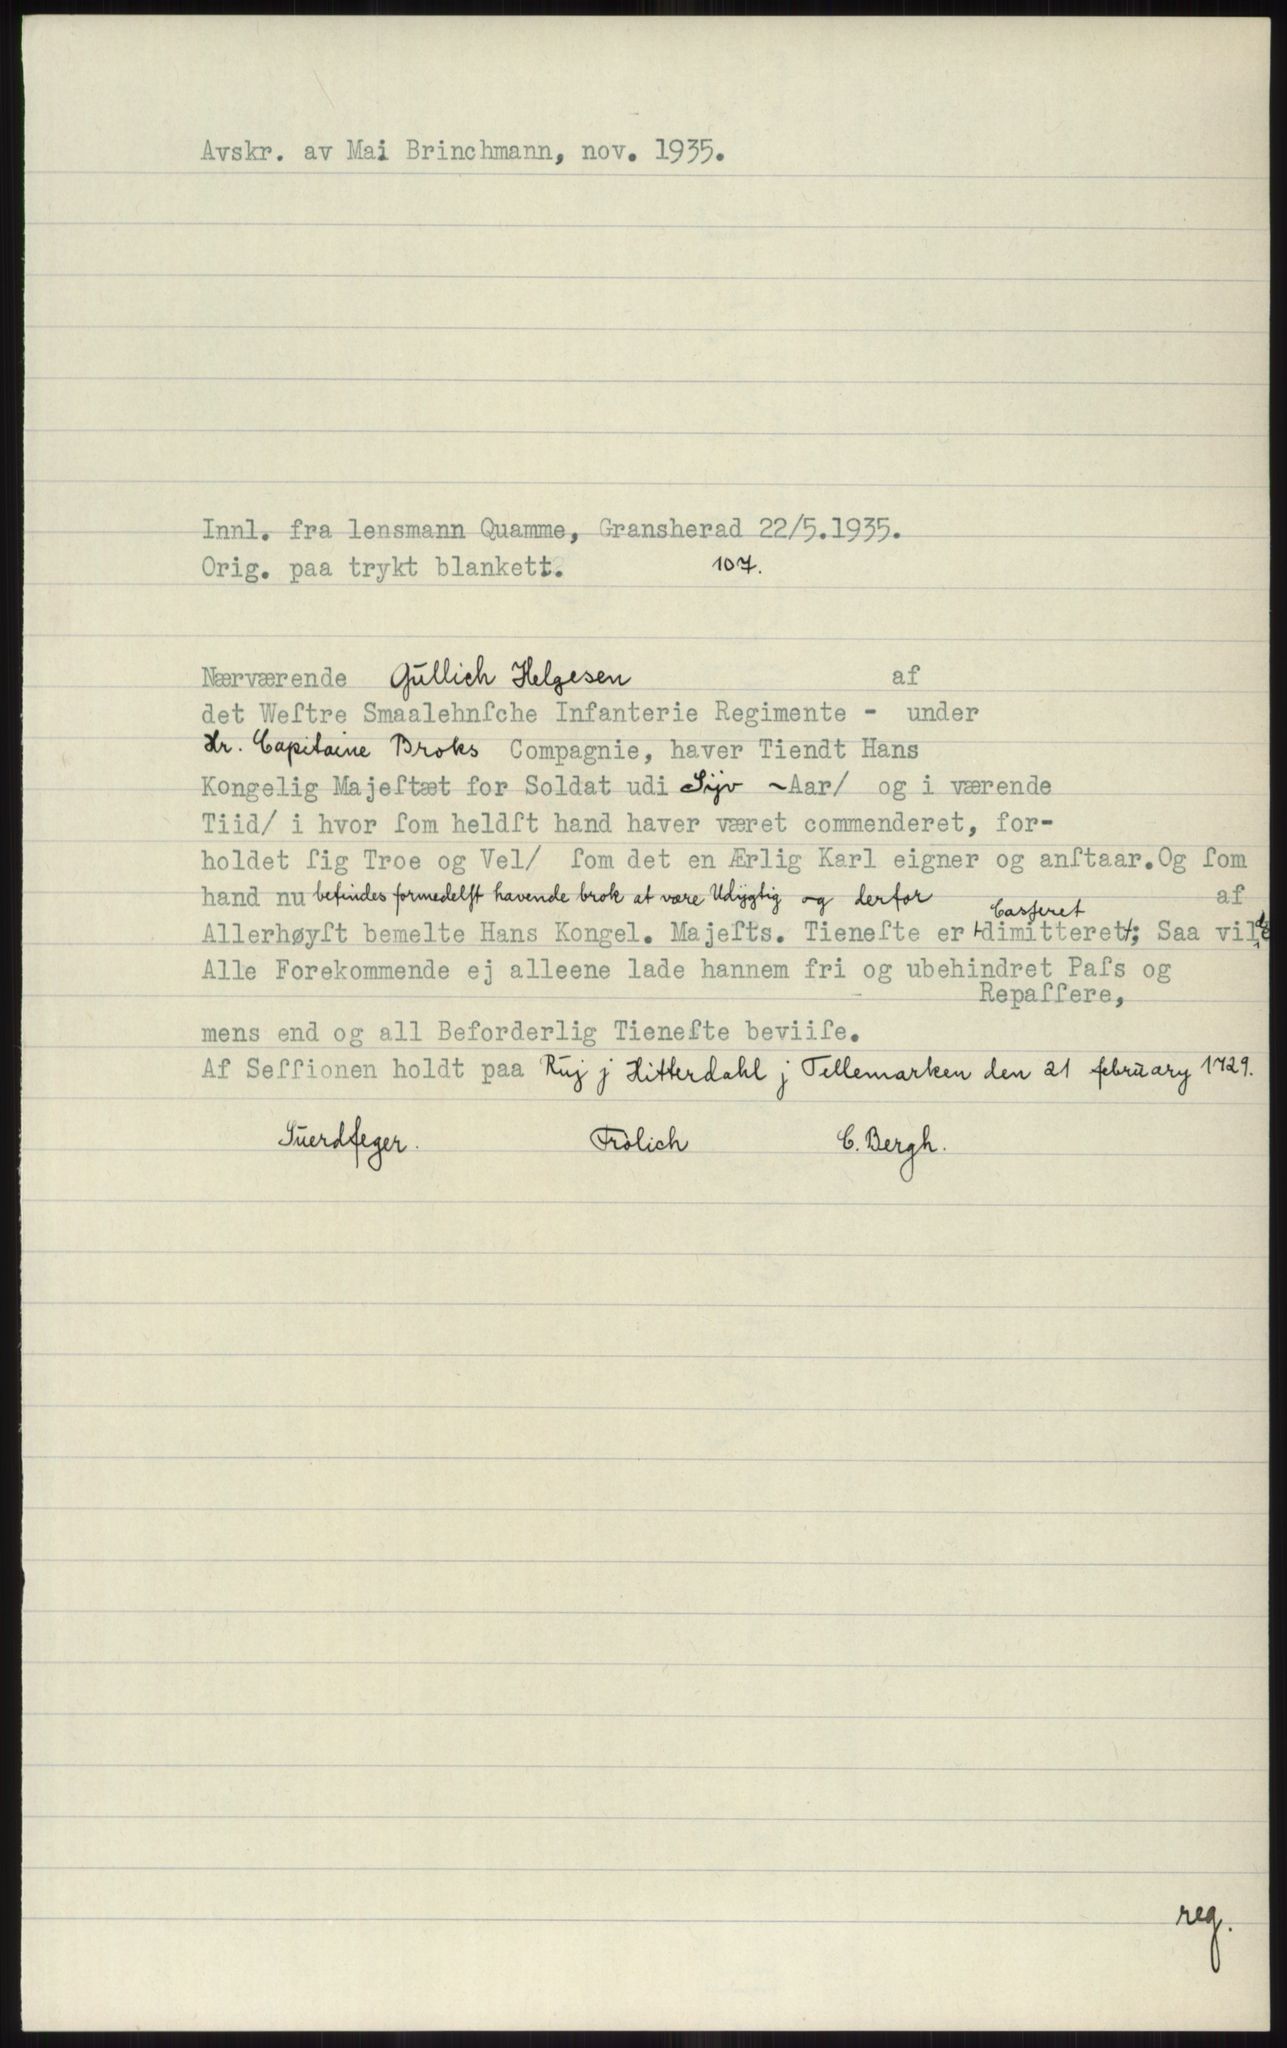 Avskr. av Mai Brinchmann, nov. 1935.
Innl. fra lensmann Quamme, Gransherad 22/5.1935.
Orig. paa trykt blankett. 107.
Nærværende Gullich Helgesen af
det Weſtre Smaalehnſche Infanterie Regimente - under
Hr. Capitaine Broks Compagnie, haver Tiendt Hans
Kongelig Majeſtæt for Soldat udi Sijv ~ Aar/ og i værende
Tiid/ i hvor ſom heldſt hand haver været commenderet, for-
holdet ſig Troe og Vel/ ſom det en Ærlig Karl eigner og anſtaar. Og ſom
hand nu befindes formedelſt havende brok at være Udygtig og derfor af
Casſeret
Allerhøyſt bemelte Hans Kongel. Majeſts. Tieneſte er ⊢dimitteret⊣; Saa vilde
Alle Forekommende ej alleene lade hannem fri og ubehindret Paſs og
Repaſſere,
mens end og all Beforderlig Tieneſte beviiſe.
Af Seſſionen holdt paa Ruj j Hitterdahl j Tellemarken den 21 february 1729.
Suerdfeger. Frölich C. Bergh.
reg.